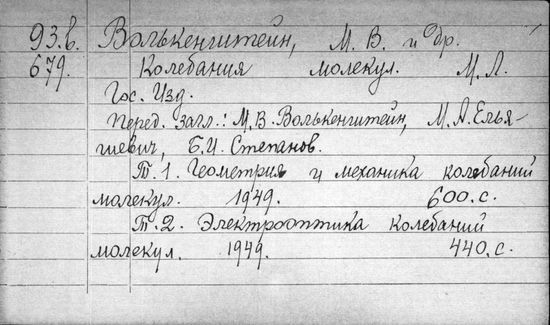 93.в. Волькенштейн, М. В. и др.
679. Колебания молекул. М. Л.
Гос. Изд.
Перед. загл.: М. В. Волькенштейн, М. А. Елья-
шевич, Б. И. Степанов.
Т. 1. Геометрия и механика колебаний
молекул. 1949. 600. с.
Т. 2. Электрооптика колебаний
молекул. 1949. 440. с.